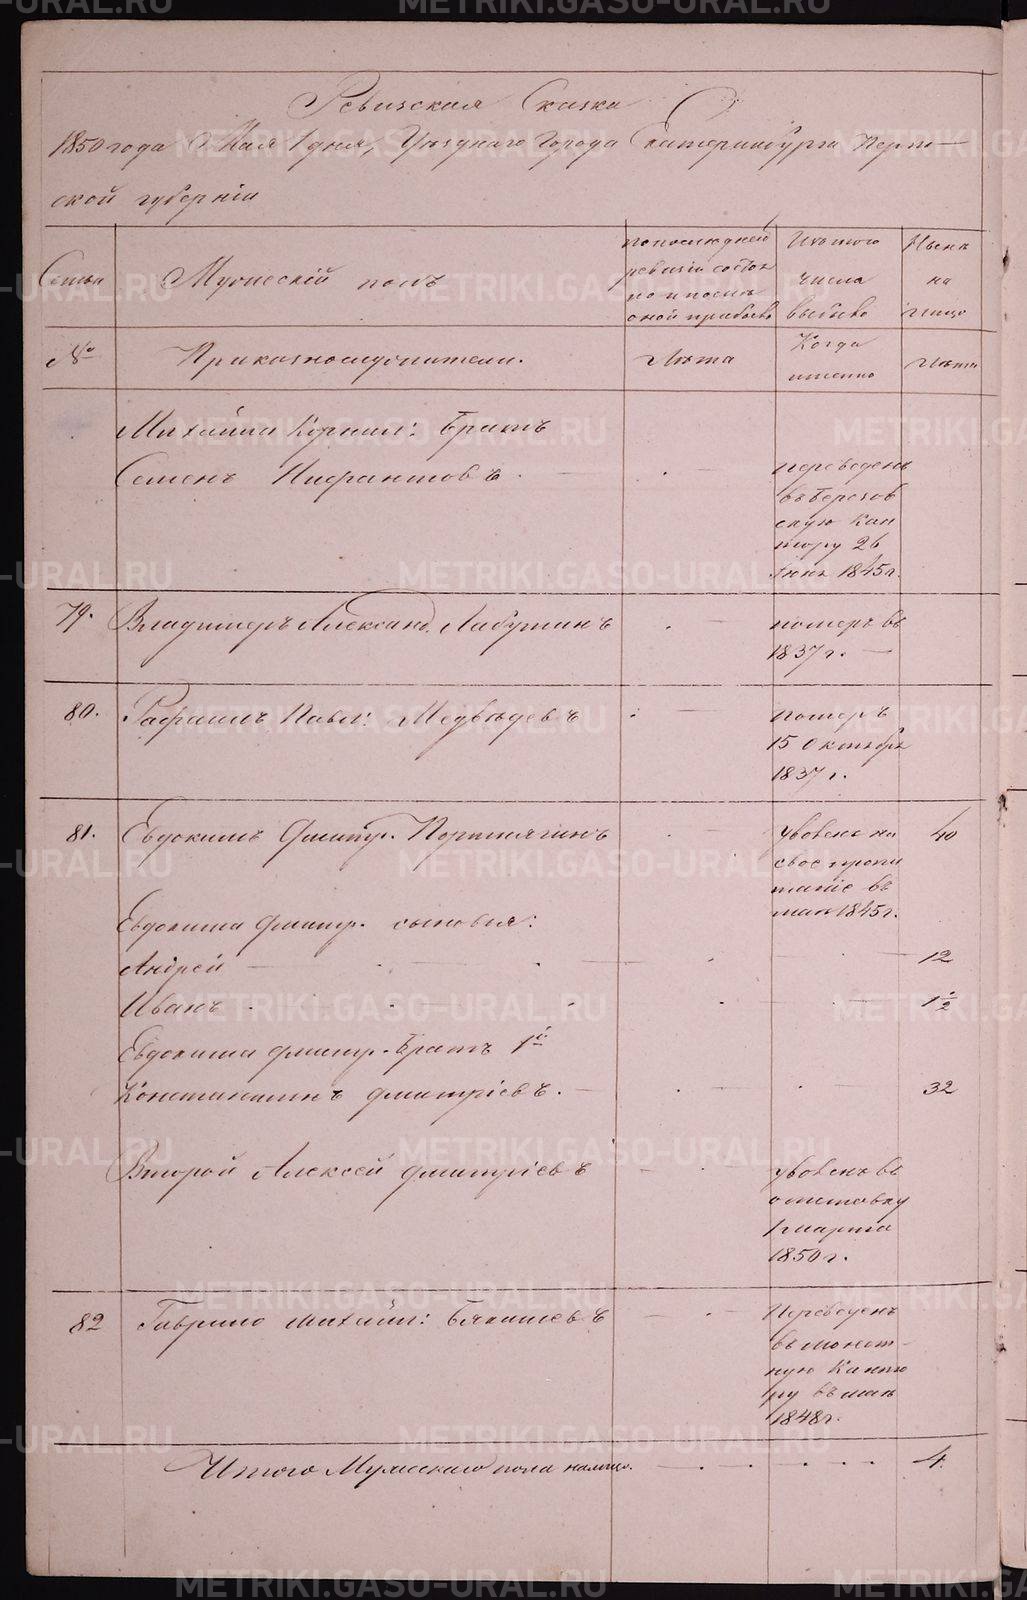 Ревизская Сказка
1850 года Мая 1 дня, Уѣзднаго Города Екатеринбурга Перм-
ской губерніи
Семьи
Мужескій полъ
по последней
ревизіи состоя
ло и послѣ
оной прибыло
Изъ того
числа
выбыло
Нынѣ
на
лицо
№
Приказнослужители.
Лѣта
Когда
именно
Лѣта
Михайла Корнил: братъ
Семенъ
переведенъ
въ Березов
скую Кан
тору 26
Іюня 1845 г.
79. Владимеръ Александ. Лабутинъ
померъ въ
1837 г.
80. Рафаилъ Павл: Медвѣдевъ
померъ
15 Октября
1837 г.
81. Евдокимъ Дмитр. Портнягинъ
уволенъ на
свое пропи
таніе въ
маѣ 1845 г.
40
Евдокима Дмитр. сыновья:
Андрей 12
Иванъ 1 1/2
Евдокима Дмитр. Братъ 1й
Константинъ Дмитріевъ. 32
Второй Алексѣй Дмитріевъ
уволенъ въ
отставку
1 марта
1850 г.
82 Гаврило Михайл:
Переведенъ
въ монет-
ную Канто
ру въ маѣ
1848 г.
Итого Мужескаго пола налицо. 4.
METRIKI.GASO-URAL.RU